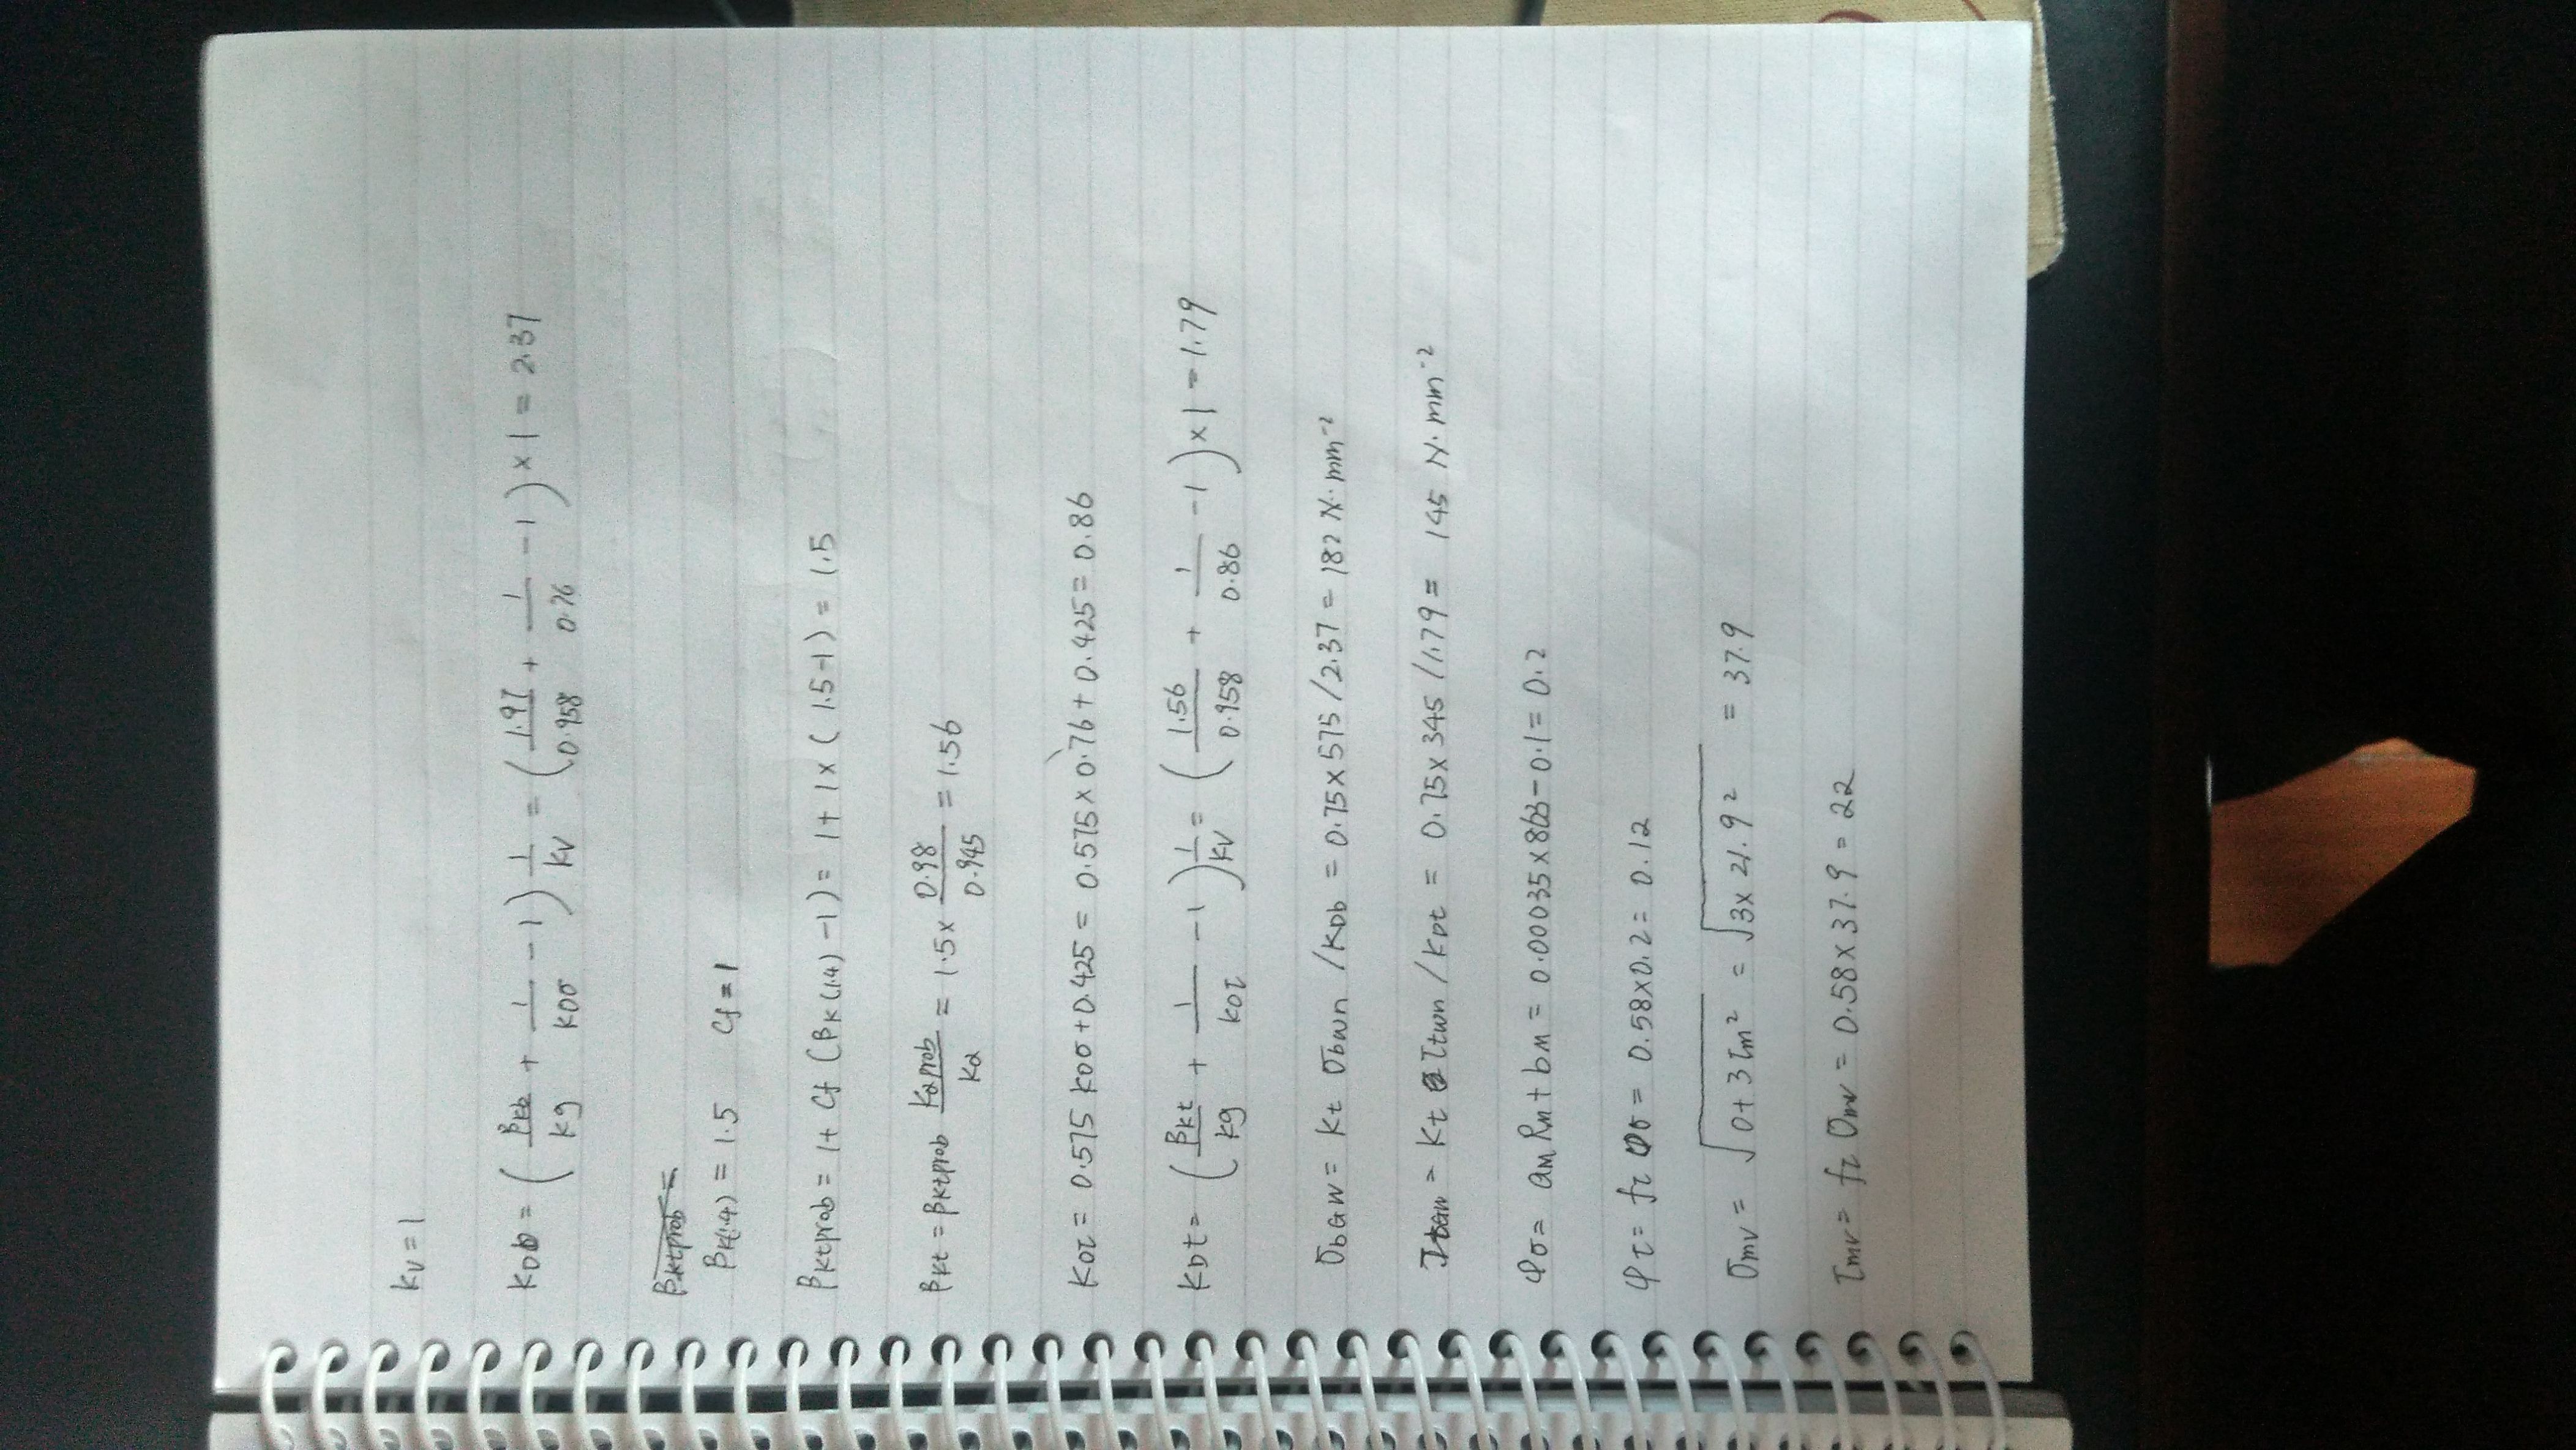 Kv = 1
KDb = ( βkb/kg + 1/Koσ - 1 ) 1/kv = ( 1.97/0.958 + 1/0.76 - 1 ) × 1 = 2.37
βktprob =
βk(1.4) = 1.5 Cf = 1
βktprob = 1 + Cf (βk(1.4) - 1) = 1 + 1 × (1.5 - 1) = 1.5
βkt = βktprob Kαprob/Kα = 1.5 × 0.98/0.945 = 1.56
Koτ = 0.575 Koσ + 0.425 = 0.575 × 0.76 + 0.425 = 0.86
KDt = ( βkt/kg + 1/Koτ - 1 ) 1/kv = ( 1.56/0.958 + 1/0.86 - 1 ) × 1 = 1.79
σbGW = Kt σbwn / KDb = 0.75 × 575 / 2.37 = 182 N·mm⁻²
τtGW = Kt τtwn / KDt = 0.75 × 345 / 1.79 = 145 N·mm⁻²
φσ = aM Rm + bM = 0.00035 × 863 - 0.1 = 0.2
φτ = fτ φσ = 0.58 × 0.2 = 0.12
σmv = √(0 + 3 τm²) = √(3 × 21.9²) = 37.9
τmv = fτ σmv = 0.58 × 37.9 = 22